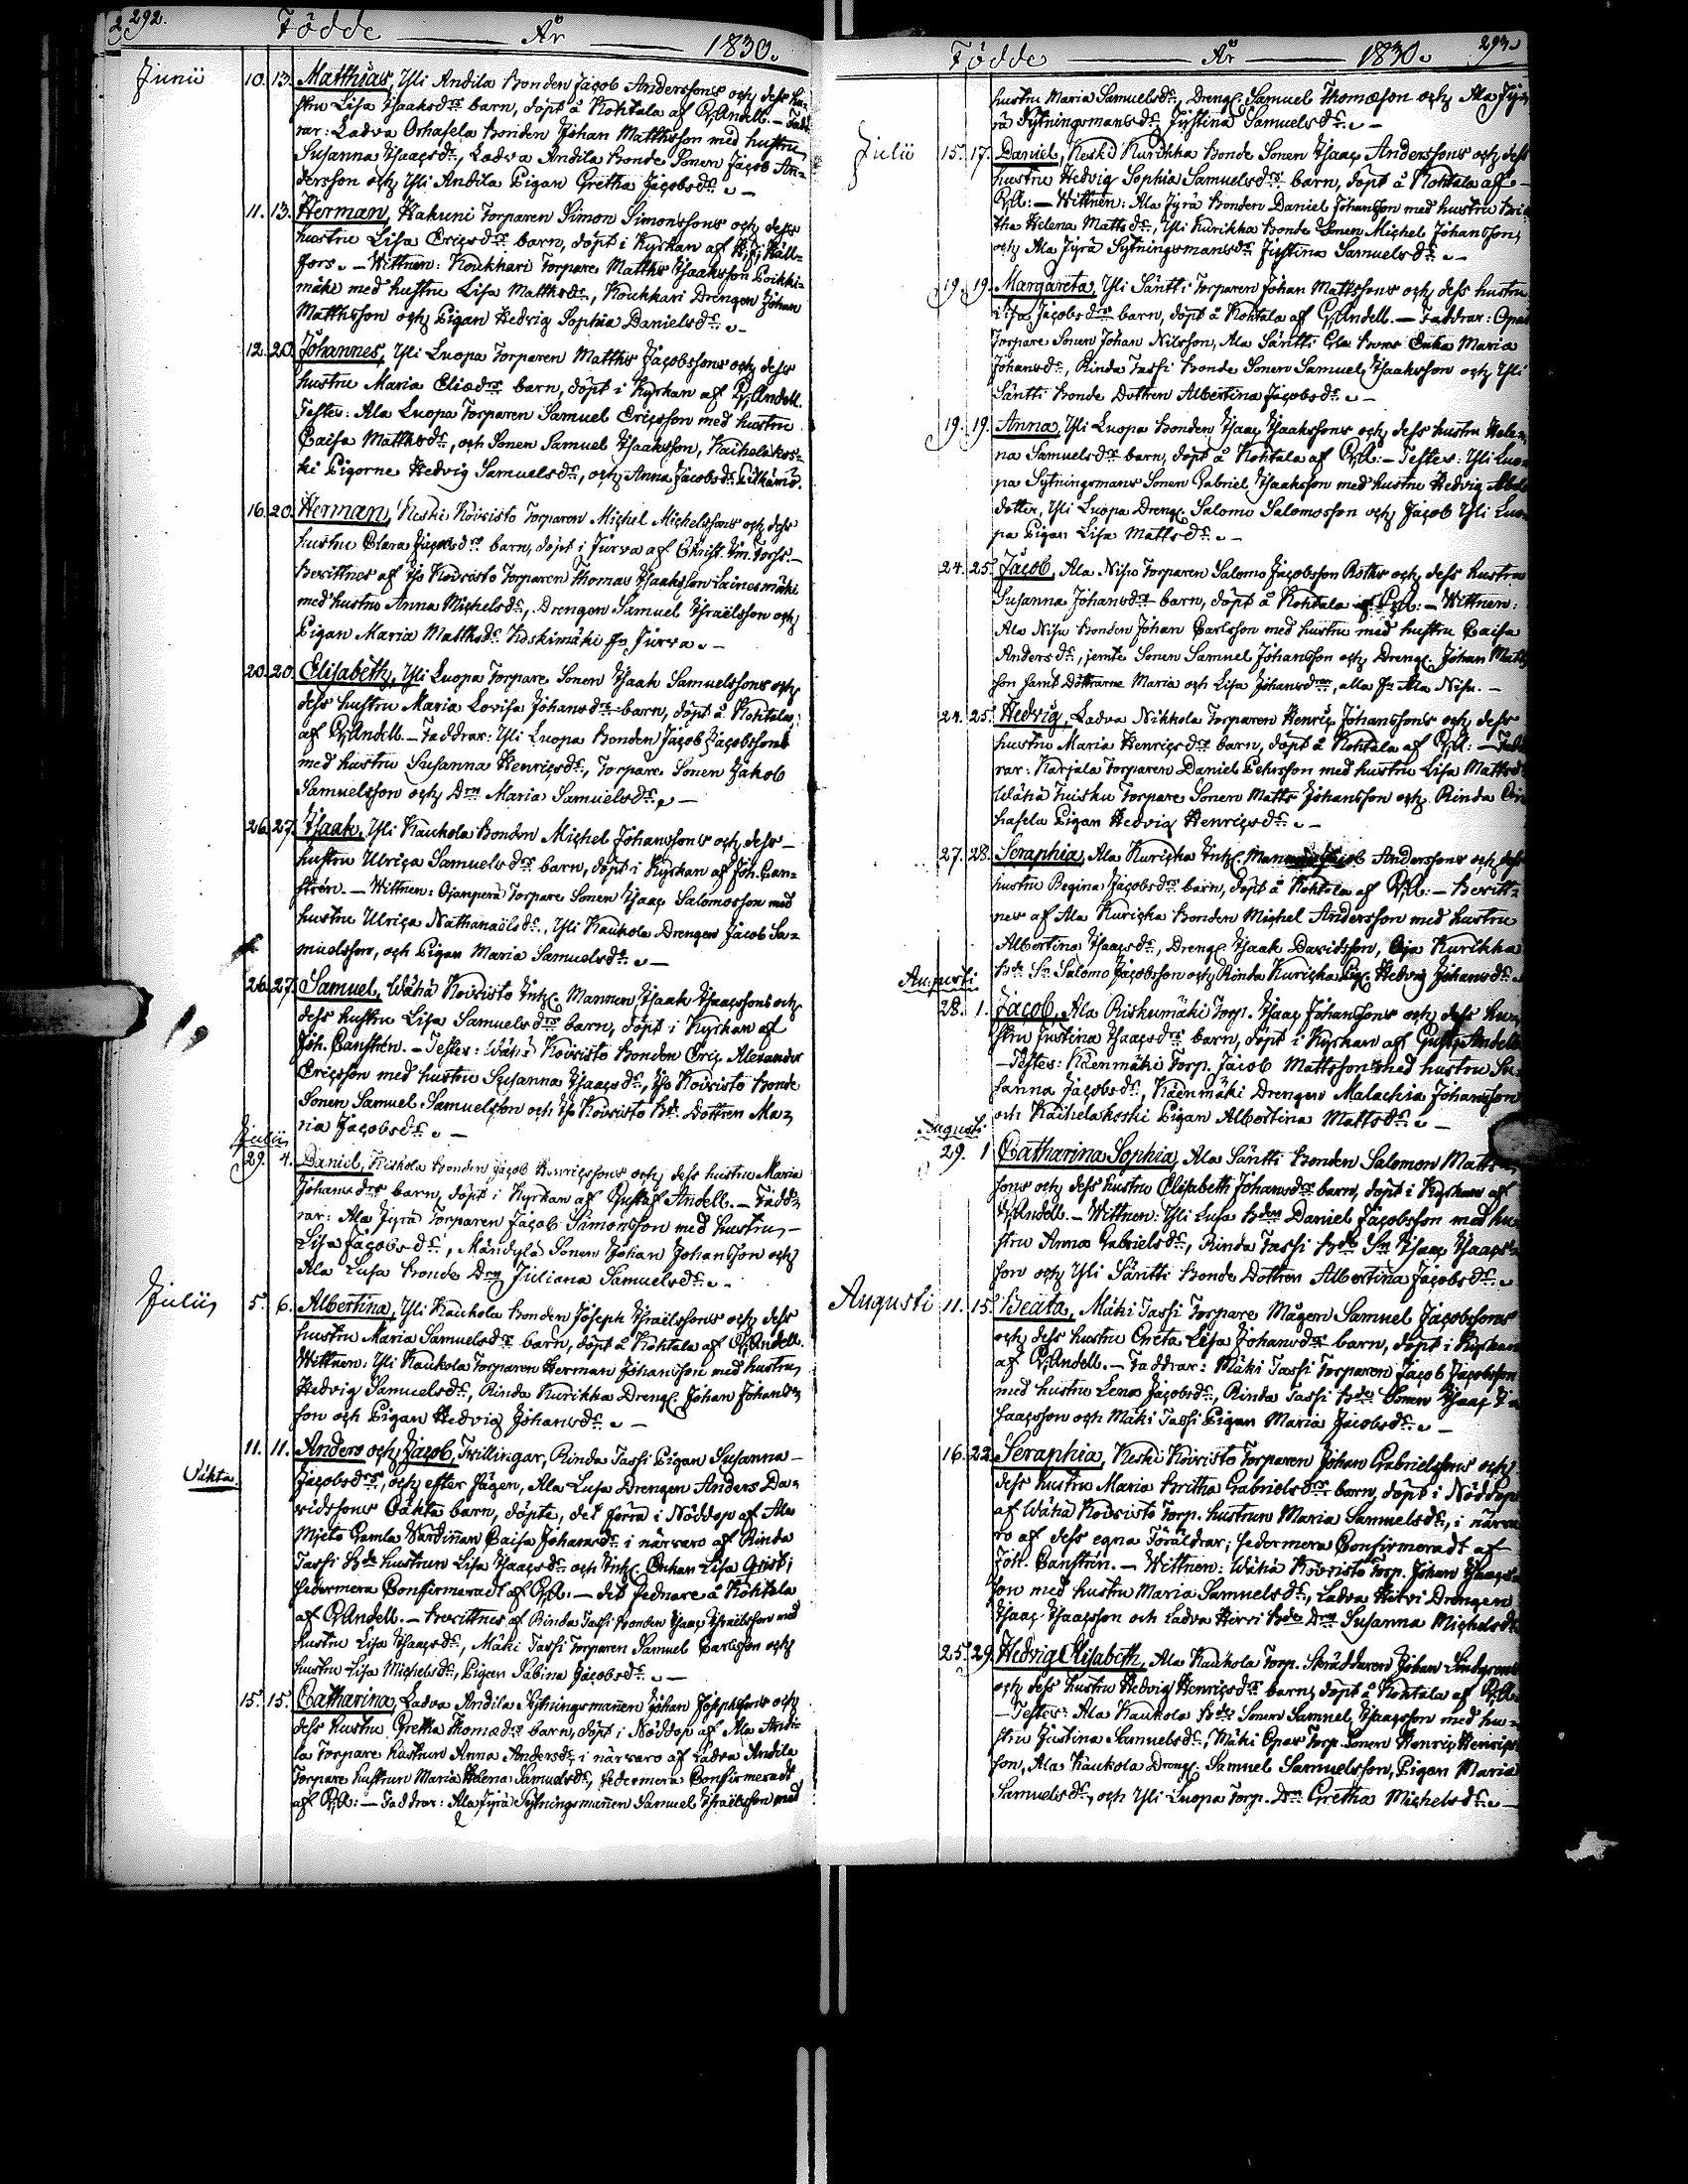 292.
Födde År 1830.
Junii 10. 13. Matthias, Yli Andila Bonden Jacob Anderssons och dess hu-
stru Lisa Isaaksdrs barn, döpt å Kohtala af G. Andell. — Fadd-
rar: Ladva Orhafela Bonden Johan Matthsson med hustru
Susanna Isaacsdr, Ladva Andila Bonde Sonen Jacob An-
dersson och Yli Andila Pigan Gretha Jacobsdr. —
11. 13. Herman, Hakuni Torparen Simon Simonssons och dess
hustru Lisa Ericsdrs barn, döpt i Kyrkan af H. J. Häll-
fors. — Wittnen: Koukkari Torpare Matths Isaaksson Poikki-
mäki med hustru Lisa Matthsdr, Koukkari Drengen Johan
Matthsson och Pigan Hedvig Sophia Danielsdr. —
12. 20. Johannes, Yli Luopa Torparen Matths Jacobssons och dess
hustru Maria Eliædrs barn, döpt i Kyrkan af G. Andell.
Testes: Ala Luopa Torparen Samuel Ericsson med hustru
Caisa Matthsdr, och Sonen Samuel Isaaksson, Kaihelakos-
ki Pigorne Hedvig Samuelsdr, och Anna Jacobsdr Pitkämö.
16. 20. Herman, Keski Koivisto Torparen Michel Michelssons och dess
hustru Clara Jacobsdrs barn, döpt i Jurva af Christ. Im. Forss. —
Bevittnes af Iso Koivisto Torparen Thomas Isaaksson Lainesmäki
med hustru Anna Michelsdr, Drengen Samuel Israëlsson och
Pigan Maria Matthsdr Koskimäki fr. Jurva. —
20. 20. Elisabeth, Yli Luopa Torpare Sonen Isaak Samuelssons och
dess hustru Maria Lovisa Johansdrs barn, döpt å Kohtala
af G. Andell. — Faddrar: Yli Luopa Bonden Jacob Jacobsson
med hustru Susanna Henricsdr, Torpare Sonen Jakob
Samuelsson och Drn Maria Samuelsdr. —
26. 27. Isaak, Yli Kaukola Bonden Michel Johanssons och dess
hustru Ulrica Samuelsdrs barn, döpt i Kyrkan af Joh. Can-
strén. — Wittnen: Ojanperä Torpare Sonen Isaac Salomosson med
hustru Ulrica Nathanaëlsdr, Yli Kaukola Drengen Jacob Sa-
muelsson, och Pigan Maria Samuelsdr. —
26. 27. Samuel, Wähä Koivisto Inh. Mannen Isaak Isaacssons och
dess hustru Lisa Samuelsdrs barn, döpt i Kyrkan af
Joh. Canstrén. — Testes: Wähä Koivisto Bonden Eric Alexander
Ericsson med hustru Susanna Isaacsdr, Iso Koivisto Bonde
Sonen Samuel Samuelsson och Iso Koivisto Bde Dottren Ma-
ria Jacobsdr. —
Julii
29. 4. Daniel, Keskola Bonden Jacob Henricssons och dess hustru Maria
Johansdrs barn, döpt i Kyrkan af Gustaf Andell. — Fadd-
rar: Ala Jyrä Torparen Jacob Simonsson med hustru
Lisa Jacobsdr, Mändylä Sonen Johan Johansson och
Ala Lusa Bonde Drn Juliana Samuelsdr. —
Julii, 5. 6. Albertina, Yli Kaukola Bonden Joseph Israëlssons och dess
hustru Maria Samuelsdrs barn, döpt å Kohtala af G. Andell.
Wittnen: Yli Kaukola Torparen Herman Johansson med hustru
Hedvig Samuelsdr, Rinda Kurikka Dreng. Johan Johans-
son och Pigan Hedvig Johansdr. —
Oäkta. 11. 11. Anders och Jacob, Tvillingar, Rinda Tassi Pigan Susanna
Jacobsdrs, och efter sägen, Ala Lusa Drengen Anders Da-
vidssons Oäkta barn, döpte, det förra i Nöddop af Ala
Mieto Gamla Värdinnan Caisa Johansdr i närvaro af Rinda
Tassi Bde hustrun Lisa Isaacsdr och Inh. Enkan Lisa Qvist;
sedermera Confirmeradt af G. A. — det sednare å Kohtala
af G. Andell. — Bevittnes af Rinda Tassi Bonden Isaac Israëlsson med
hustru Lisa Isaacsdr, Mäki Tassi Torparen Samuel Carlsson och
hustru Lisa Michelsdr, Pigan Sabina Jacobsdr. —
15. 15. Catharina, Ladva Andila Sytningsmannen Johan Josephssons och
dess hustru Gretha Thomædrs barn, döpt i Nöddop af Ala Andi-
la Torpare hustrun Anna Andersdr i närvaro af Ladva Andila
Torpare hustrun Maria Helena Samuelsdr, sedermera Confirmeradt
af G. A: — Faddrar: Ala Jyrä Sytningsmannen Samuel Israëlsson med
293.
Födde År 1830.
hustru Maria Samuelsdr, Dreng. Samuel Thomæson och Ala Jy-
rä Sytningsmansdr Justina Samuelsdr. —
Julii 15. 17. Daniel, Keski Kurikka Bonde Sonen Isaac Anderssons och dess
hustru Hedvig Sophia Samuelsdrs barn, döpt å Kohtala af
G. A: — Wittnen: Ala Jyrä Bonden Daniel Johansson med hustru Bri-
tha Helena Mattsdr, Yli Kurikka Bonde Sonen Michel Johansson,
och Ala Jyrä Sytningsmansdr Justina Samuelsdr. —
19. 19. Margareta, Yli Säntti Torparen Johan Mattssons och dess hustru
Lisa Jacobsdrs barn, döpt å Kohtala af G. Andell. — Faddrar:
Torpare Sonen Johan Nilsson, Ala Säntti Enka Maria
Johansdr, Rinda Tassi Bonde Sonen Samuel Isaaksson och Yli
Säntti Bonde Dottren Albertina Jacobsdr. —
19. 19. Anna, Yli Luopa Bonden Isaac Isaakssons och dess hustru Hele-
na Samuelsdrs barn, döpt å Kohtala af G. A: — Testes: Yli Luo-
pa Sytningsmans Sonen Gabriel Isaaksson med hustru Hedvig
dotter, Yli Luopa Dreng. Salomo Salomosson och Jacob Yli Luo-
pa Pigan Lisa Mattsdr. —
24. 25. Jacob, Ala Nisu Torparen Salomo Jacobsson Roths och dess hustru
Susanna Johansdrs barn, döpt å Kohtala af G. A: — Wittnen:
Ala Nisu Bonden Johan Carlsson med hustru med hustru Caisa
Andersdr, jemte Sonen Samuel Johansson och Dreng. Johan Matts-
son samt Döttrarne Maria och Lisa Johansdrar, alla fr. Ala Nisu. —
24. 25. Hedvig, Ladva Nikkola Torparen Henric Johanssons och dess
hustru Maria Henricsdrs barn, döpt å Kohtala af G. A: — Fadd-
rar: Karjala Torparen Daniel Pehrsson med hustru Lisa Mattsdr
Wähä Tuisku Torpare Sonen Matts Johansson och Rinda
hasela Pigan Hedvig Henricsdr. —
27. 28. Seraphia, Ala Kuricka Inh. Mannen Jacob Anderssons och dess
hustru Regina Jacobsdrs barn, döpt å Kohtala af G. A: — Bevitt-
nes af Ala Kuricka Bonden Michel Andersson med hustru
Albertina Isaacsdr, Dreng. Isaak Davidsson, Oja Kurikka
Bde Sn Salomo Jacobsson och Rinda Kuricka Pig. Hedvig Johansdr.
Augusti
28. 1. Jacob, Ala Riskumäki Torp. Isaac Johanssons och dess hu-
stru Justina Isaacsdrs barn, döpt i Kyrkan af Gust. Andell
— Testes: Käenmäki Torp. Jacob Mattsson med hustru Su-
sanna Jacobsdr, Käenmäki Drengen Malachia Johansson
och Kaihelakoski Pigan Albertina Mattsdr. —
Augusti
29. 1 Catharina Sophia, Ala Säntti Bonden Salomon Matts-
sons och dess hustru Elisabeth Johansdrs barn, döpt i Kyrkan af
G. Andell. — Wittnen: Yli Lusa Bden Daniel Jacobsson med hu-
stru Anna Gabrielsdr, Rinda Tassi Bde Sn Isaac Isaacs-
son och Yli Säntti Bonde Dottren Albertina Jacobsdr. —
Augusti 11. 15. Beata, Mäki Tassi Torpare Mågen Samuel Jacobssons
och dess hustru Greta Lisa Johansdrs barn, döpt i Kyrkan
af G. Andell. — Faddrar: Mäki Tassi Torparen Jacob Jacobsson
med hustru Lena Jacobsdr, Rinda Tassi Bde Sonen Isaac I-
saacsson och Mäki Tassi Pigan Maria Jacobsdr. —
16. 22. Seraphia, Keski Koivisto Torparen Johan Gabrielssons och
dess hustru Maria Britha Gabrielsdrs barn, döpt i Nöddop
af Wähä Koivisto Torp. hustrun Maria Samuelsdr, i närva-
ro af dess egna Föräldrar; sedermera Confirmeradt af
Joh. Canstrén. — Wittnen: Wähä Koivisto Torp. Johan Isaacs-
son med hustru Maria Samuelsdr, Ladva Hirvi Drengen
Isaac Isaacsson och Ladva Hirvi Bde Drn Susanna Michelsdr
25. 29. Hedvig Elisabeth, Ala Kaukola Torp. Skräddaren Johan Lindgrens
och dess hustru Hedvig Henricsdrs barn, döpt å Kohtala af G. A.
— Testes: Ala Kaukola Bde Sonen Samuel Isaacsson med hu-
stru Justina Samuelsdr, Mäki Opas Torp. Sonen Henric Henrics-
son, Ala Kaukola Dreng. Samuel Samuelsson, Pigan Maria
Samuelsdr, och Yli Luopa Torp. Drn Gretha Michelsdr. —